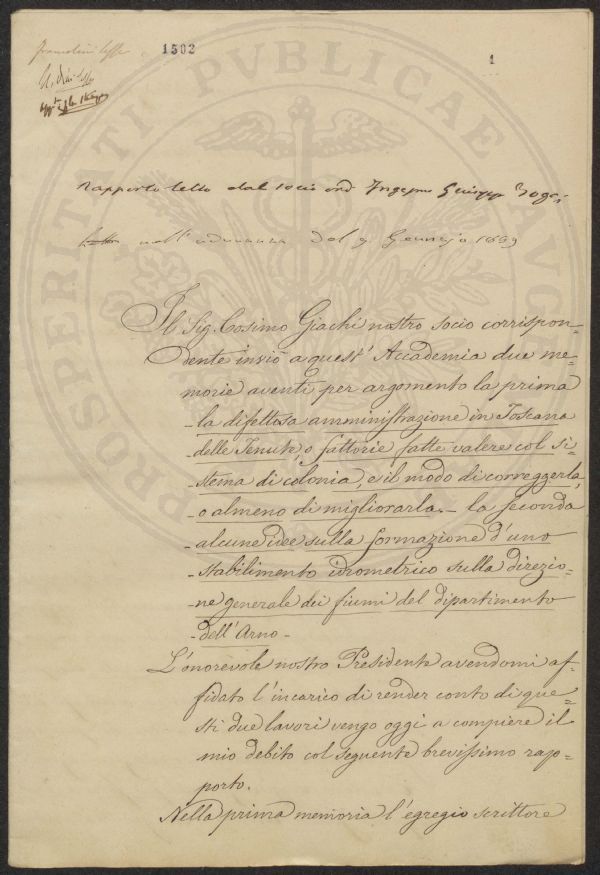 1502
1
PROSPERITATI PVBLICAE AVGENDAE
Rapporto letto dal socio ord Ingegnere Giuseppe
nell'adunanza del 9 Gennajo 1859
Il Sig. Cosimo Giachi nostro socio corrispon=
dente inviò a quest' Accademia due me=
morie aventi per argomento la prima
- la difettosa amministrazione in Toscana
delle Tenute, o fattorie fatte valere col si=
- stema di colonia, e il modo di correggerla,
- o almeno di migliorarla. - la seconda
- alcune idee sulla formazione d'uno
- stabilimento idrometrico sulla direzio=
- ne generale dei fiumi del dipartimento
- dell'Arno -
L'onorevole nostro Presidente avendomi af=
fidato l'incarico di render conto di que=
sti due lavori vengo oggi a compiere il
mio debito col seguente brevissimo rap=
porto.
Nella prima memoria l'egregio scrittore